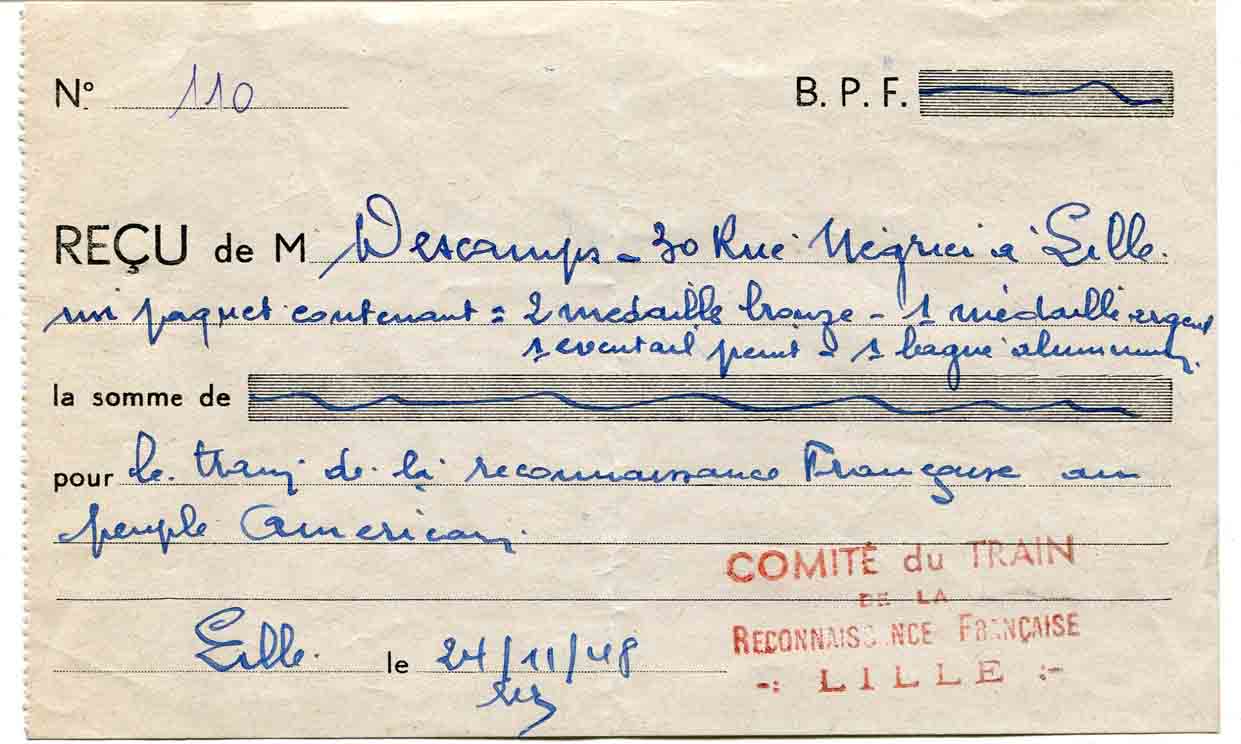 N° 110 B. P. F.
REÇU de M Descamps - 30 Rue Négrier à Lille.
un paquet contenant = 2 medaille bronze - 1 médaille argent
1 eventail peint - 1 bague aluminium
la somme de
pour le train de la reconnaissance Française au
peuple Americain.
COMITÉ du TRAIN
DE LA
RECONNAISSANCE FRANÇAISE
-: LILLE :-
Lille. le 24/11/48